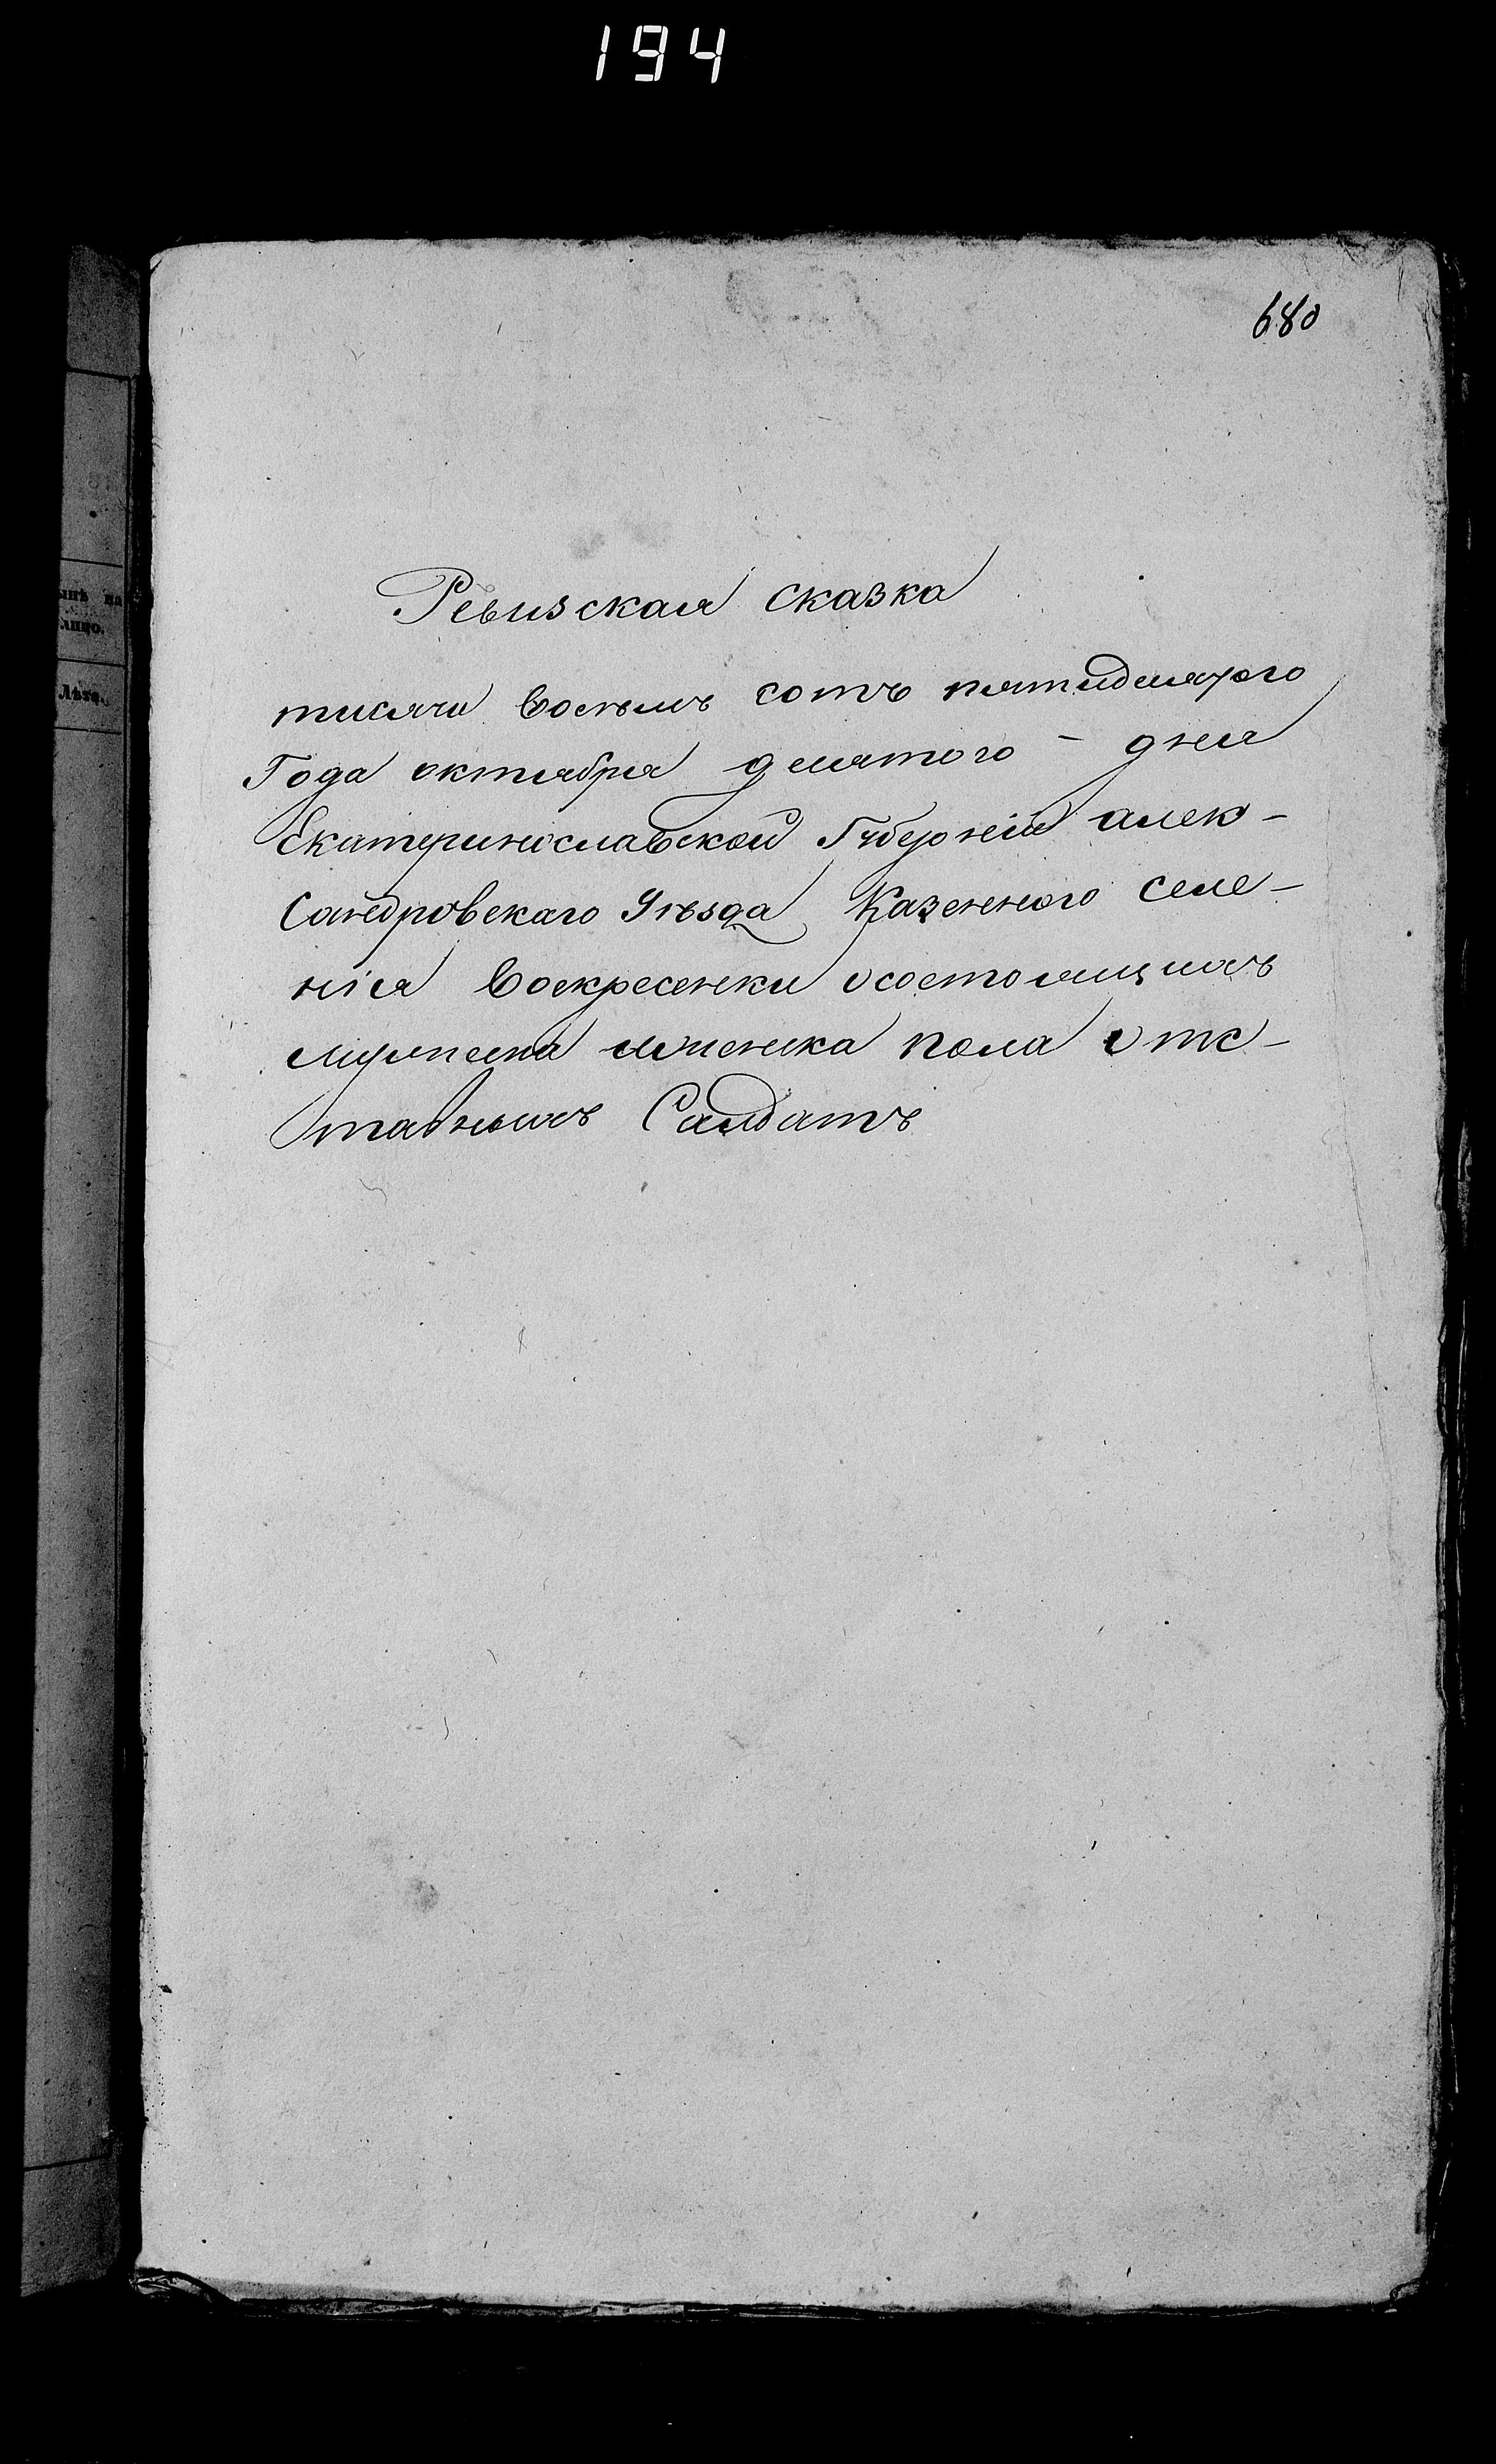 194
680
Ревизская сказка
тисячи восемъ сотъ пятидесятого
Года октября девятого – дня
Екатеринославской Губерніи алек-
Сандровскаго Уѣзда Казенного селе-
нія Воскресенки осостоящихъ
мужеска иженска пола отс-
тавныхъ Салдатъ
на
лицо.
Лѣта.